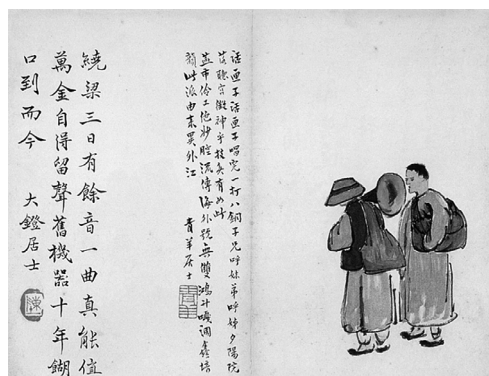 話匣子話匣子唱完一打八銅子兄呼妹弟呼姊夕陽院
落聽宫徵神乎技矣有如此
市伶工妙腔流傳海外號無雙鴻升嗓調鑫培
韻此派由來異外江
青羊居士
繞梁三日有餘音一曲真能值
萬金自得留聲舊機器十年餬
口到而今 大鐙居士
陳